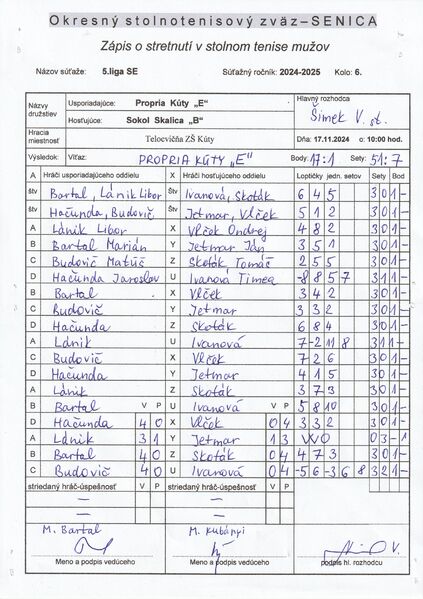 Okresný stolnotenisový zväz–SENICA
Zápis o stretnutí v stolnom tenise mužov
Názov súťaže: 5.liga SE Súťažný ročník: 2024-2025 Kolo: 6.
Názvy družstiev Usporiadajúce: Propria Kúty „E" Hlavný rozhodca
Hosťujúce: Sokol Skalica „B" Šimek V. st.
Hracia miestnosť Telocvičňa ZŠ Kúty Dňa: 17.11.2024 o 10:00 hod.
Výsledok: Víťaz: PROPRIA KÚTY „E" Body: 17:1 Sety: 51:7
A Hráči usporiadajúceho oddielu X Hráči hosťujúceho oddielu Loptičky jedn. setov Sety Bod
štv Bartal, Lánik Libor Štv Ivanová, Skoták 6 4 5 3 0 1 –
štv Hačunda, Budovič Štv Jetmar, Vlček 5 1 2 3 0 1 –
A Lánik Libor X Vlček Ondrej 4 8 2 3 0 1 –
B Bartal Marián Y Jetmar Ján 3 5 1 3 0 1 –
C Budovič Matúš Z Skoták Tomáš 2 5 5 3 0 1 –
D Hačunda Jaroslav U Ivanová Timea -8 8 5 7 3 1 1 –
B Bartal X Vlček 3 4 2 3 0 1 –
C Budovič Y Jetmar 3 3 2 3 0 1 –
D Hačunda Z Skoták 6 8 4 3 0 1 –
A Lánik U Ivanová 7 -2 11 8 3 1 1 –
C Budovič X Vlček 7 2 6 3 0 1 –
D Hačunda Y Jetmar 4 1 5 3 0 1 –
A Lánik Z Skoták 3 7 3 3 0 1 –
B Bartal V P U Ivanová V P 5 8 10 3 0 1 –
D Hačunda 4 0 X Vlček 0 4 3 3 2 3 0 1 –
A Lánik 3 1 Y Jetmar 1 3 WO 0 3 – 1
B Bartal 4 0 Z Skoták 0 4 4 7 3 3 0 1 –
C Budovič 4 0 U Ivanová 0 4 -5 6 -3 6 8 3 2 1 –
striedaný hráč-úspešnosť V P striedaný hráč-úspešnosť V P
— —
— —
M. Bartal M. Kubányi
Meno a podpis vedúceho Meno a podpis vedúceho podpis hl. rozhodcu